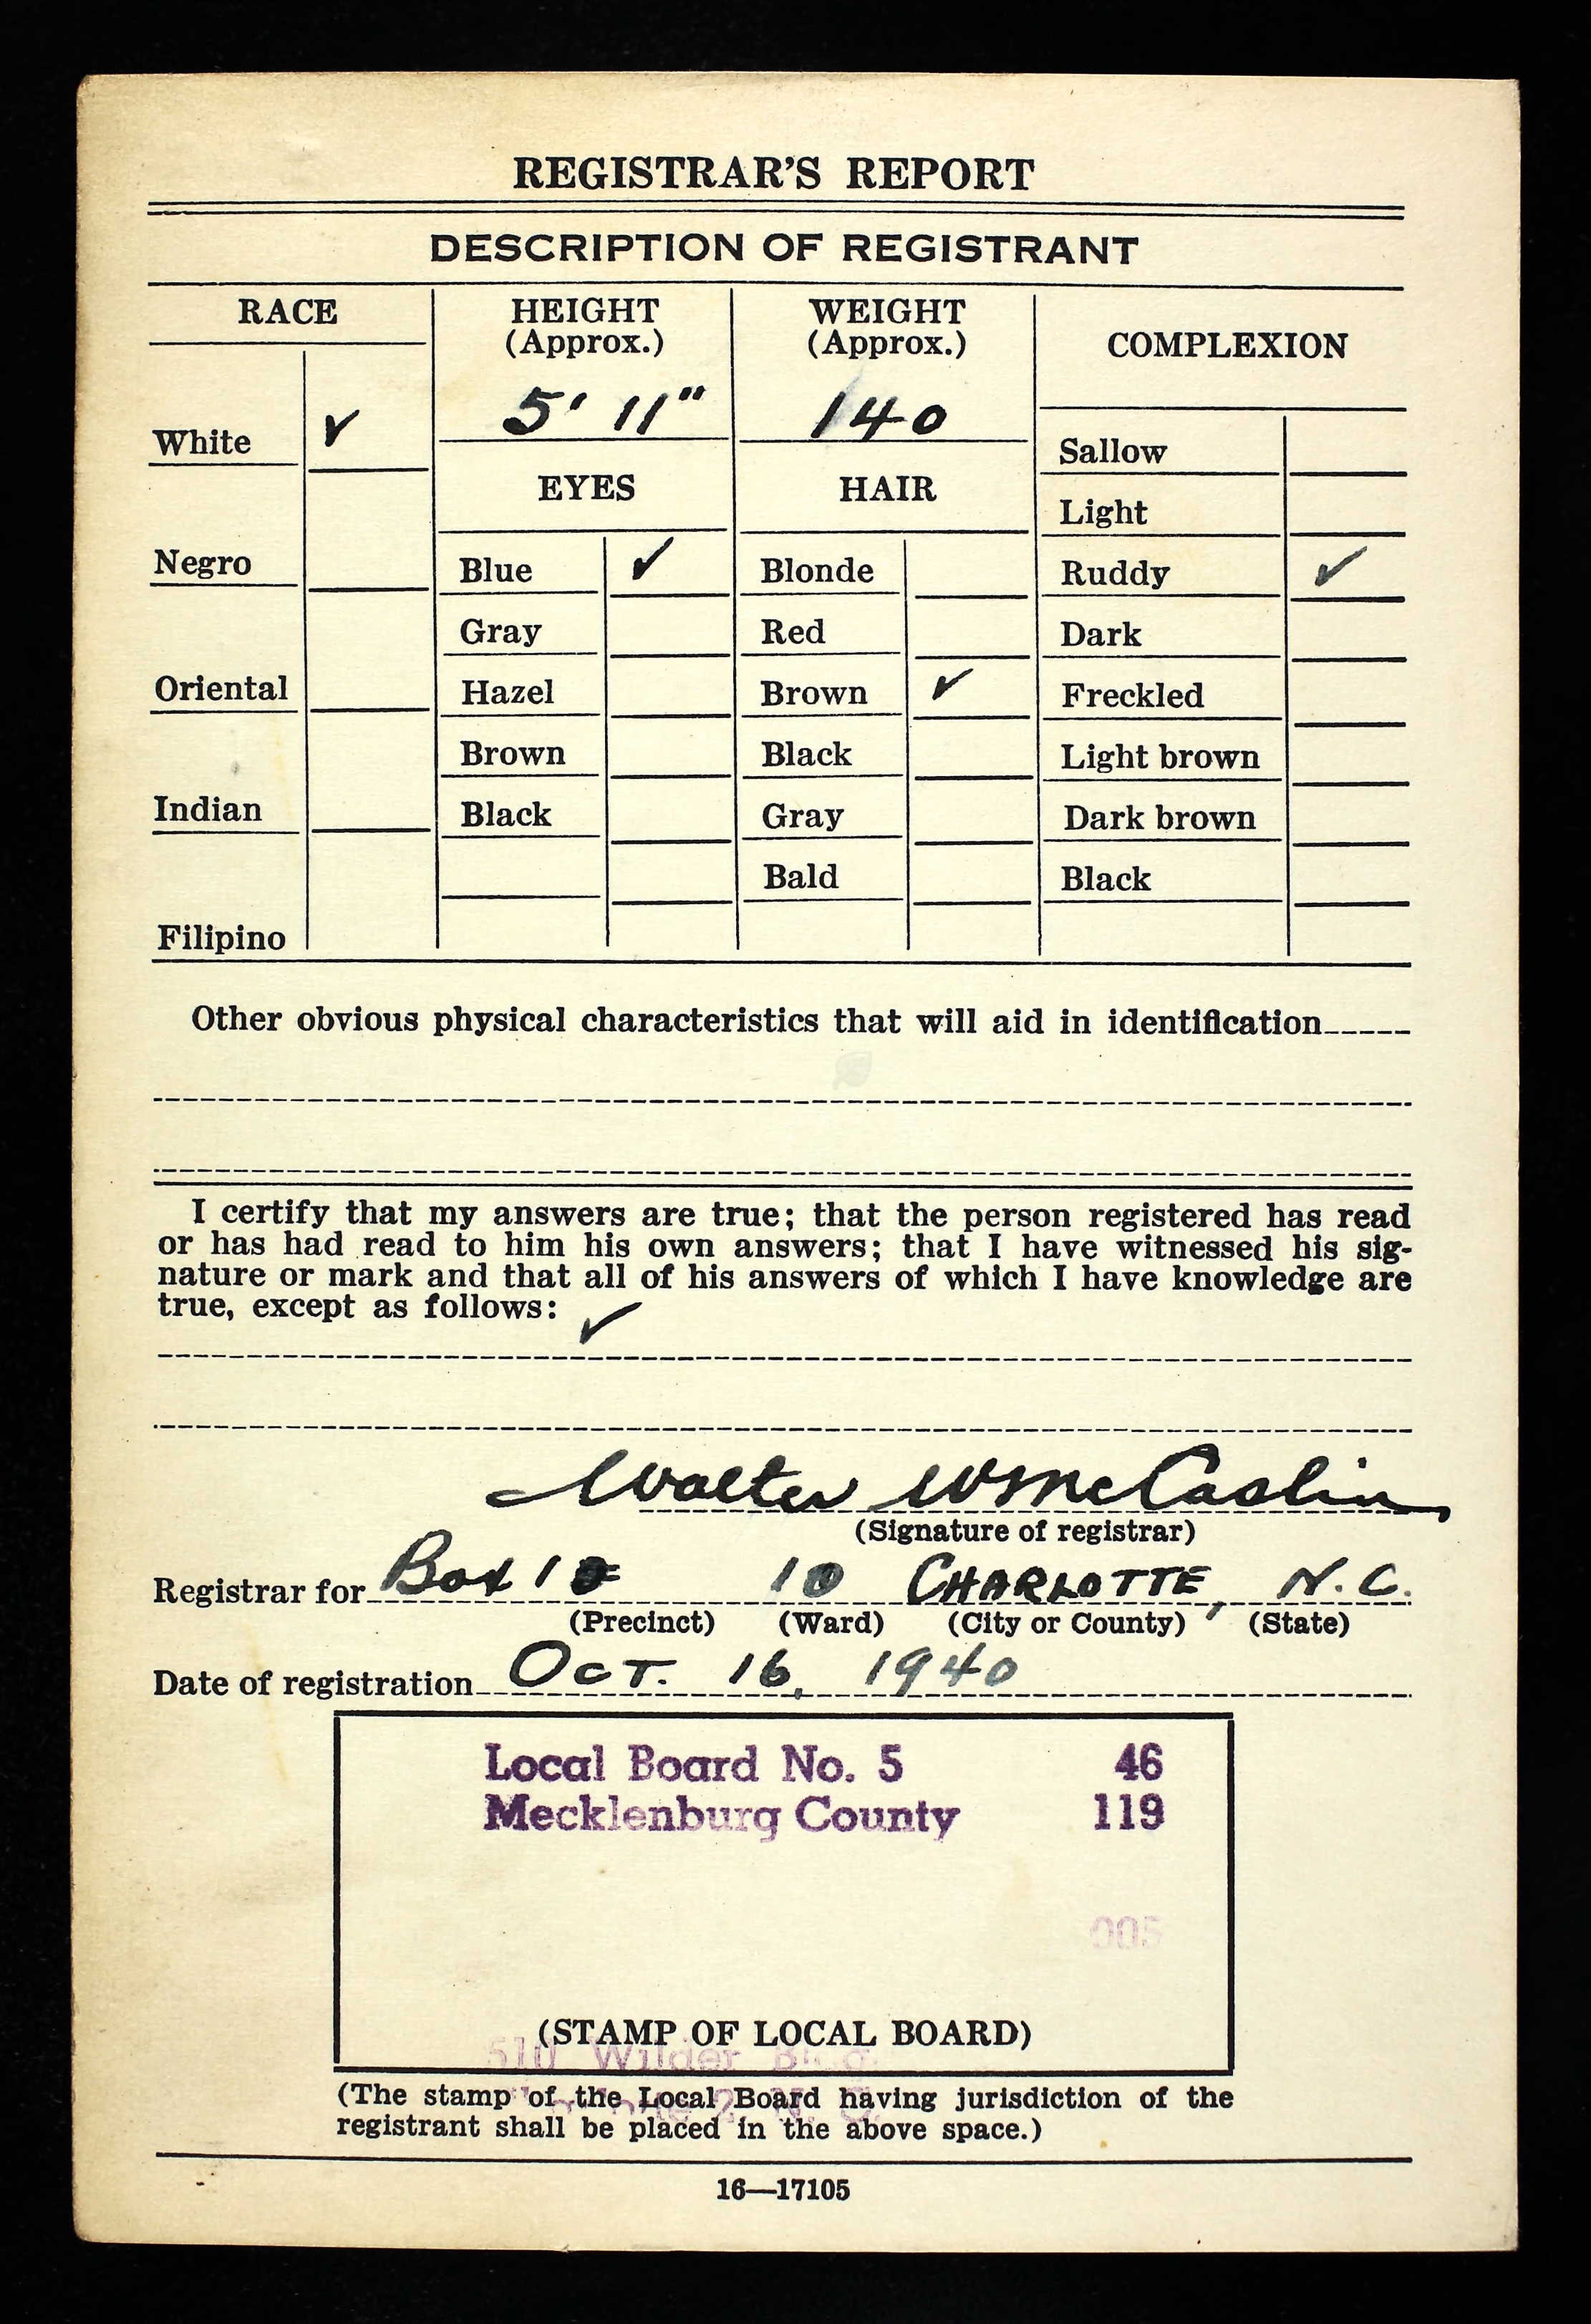 REGISTRAR'S REPORT
DESCRIPTION OF REGISTRANT
RACE
HEIGHT
(Approx.)
WEIGHT
(Approx.)
COMPLEXION
White ✓
5' 11"
140
Sallow
EYES
HAIR
Light
Negro
Blue ✓
Blonde
Ruddy ✓
Gray
Red
Dark
Oriental
Hazel
Brown ✓
Freckled
Brown
Black
Light brown
Indian
Black
Gray
Dark brown
Bald
Black
Filipino
Other obvious physical characteristics that will aid in identification
I certify that my answers are true; that the person registered has read
or has had read to him his own answers; that I have witnessed his sig-
nature or mark and that all of his answers of which I have knowledge are
true, except as follows: ✓
Walter W McCaslin
(Signature of registrar)
Registrar for Box 10 10 CHARLOTTE, N.C.
(Precinct) (Ward) (City or County) (State)
Date of registration OCT. 16, 1940
Local Board No. 5 46
Mecklenburg County 119
005
(STAMP OF LOCAL BOARD)
510 Wilder Bldg.
(The stamp of the Local Board having jurisdiction of the
registrant shall be placed in the above space.)
16—17105